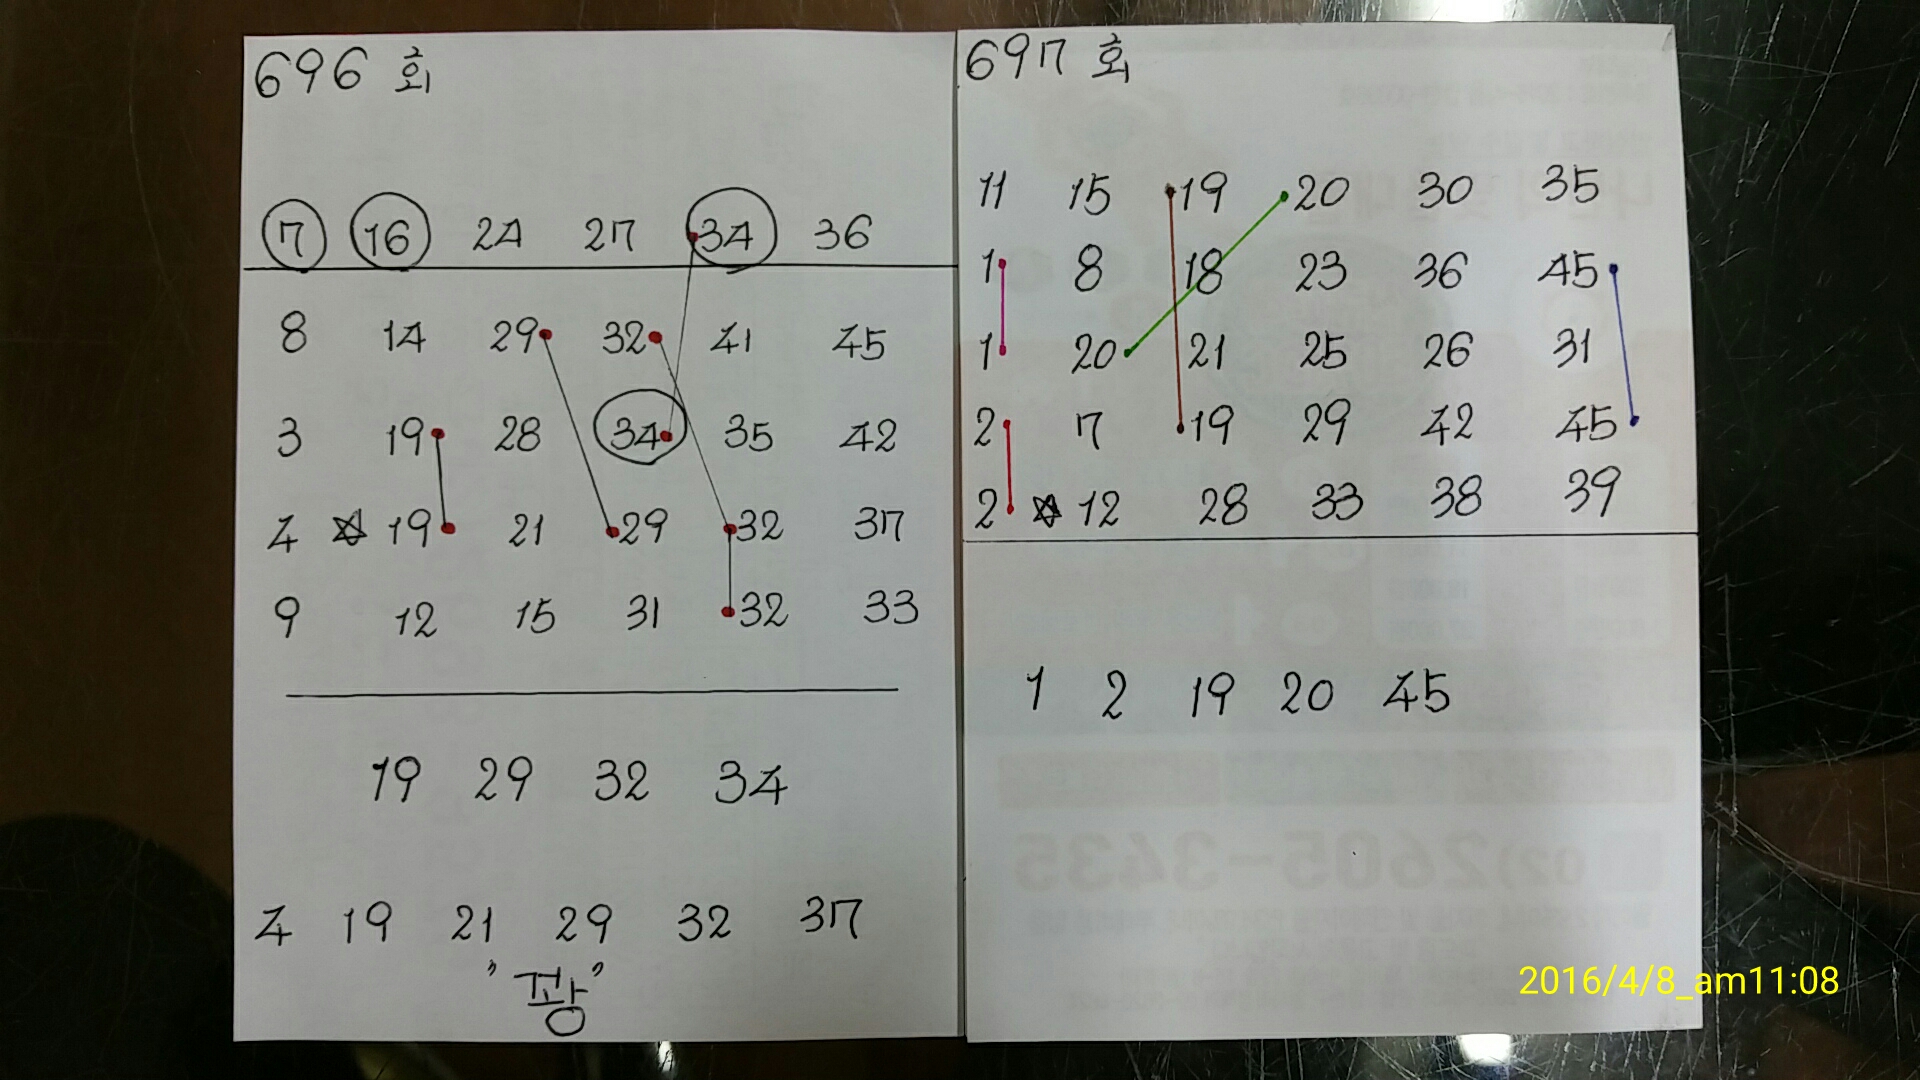 696 회
7 16 24 27 34 36
8 14 29 32 41 45
3 19 28 34 35 42
4 ☆ 19 21 29 32 37
9 12 15 31 32 33
19 29 32 34
4 19 21 29 32 37
"꽝"
697 회
11 15 19 20 30 35
1 8 18 23 36 45
1 20 21 25 26 31
2 7 19 29 42 45
2 ☆ 12 28 33 38 39
1 2 19 20 45
02)2605-3435
2016/4/8_am11:08